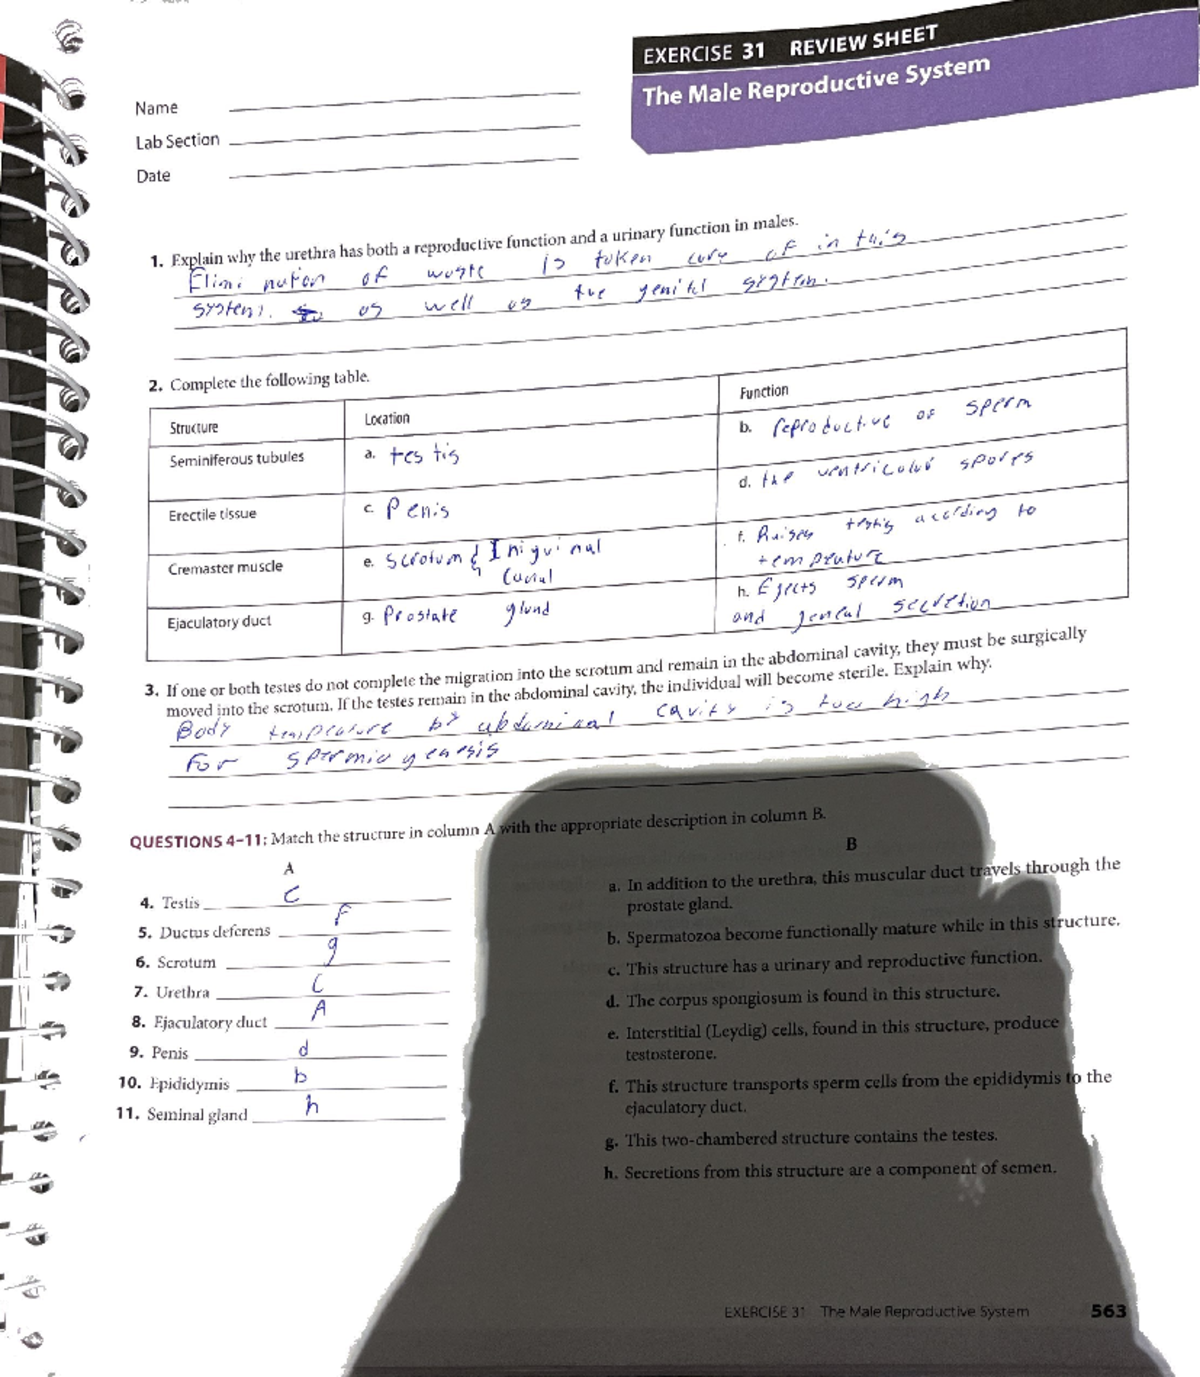 EXERCISE 31 REVIEW SHEET
The Male Reproductive System
Name
Lab Section
Date
1. Explain why the urethra has both a reproductive function and a urinary function in males.
Elimination of waste is taken care of in this
system. as well as the genital system.
2. Complete the following table.
Structure Location Function
Seminiferous tubules a. testis b. reproductive of sperm
Erectile tissue c. Penis d. the ventricular spores
Cremaster muscle e. Scrotum & Iniguinal f. Raises testis according to
temprature
Ejaculatory duct g. Prostate gland h. Ejects sperm
and secretion
3. If one or both testes do not complete the migration into the scrotum and remain in the abdominal cavity, they must be surgically
moved into the scrotum. If the testes remain in the abdominal cavity, the individual will become sterile. Explain why.
Body abdominal cavity is too high
For
QUESTIONS 4–11: Match the structure in column A with the appropriate description in column B.
A
4. Testis C
5. Ductus deferens F
6. Scrotum g
7. Urethra C
8. Ejaculatory duct A
9. Penis d
10. Epididymis b
11. Seminal gland h
B
a. In addition to the urethra, this muscular duct travels through the
prostate gland.
b. Spermatozoa become functionally mature while in this structure.
c. This structure has a urinary and reproductive function.
d. The corpus spongiosum is found in this structure.
e. Interstitial (Leydig) cells, found in this structure, produce
testosterone.
f. This structure transports sperm cells from the epididymis to the
ejaculatory duct.
g. This two-chambered structure contains the testes.
h. Secretions from this structure are a component of semen.
EXERCISE 31 The Male Reproductive System 563